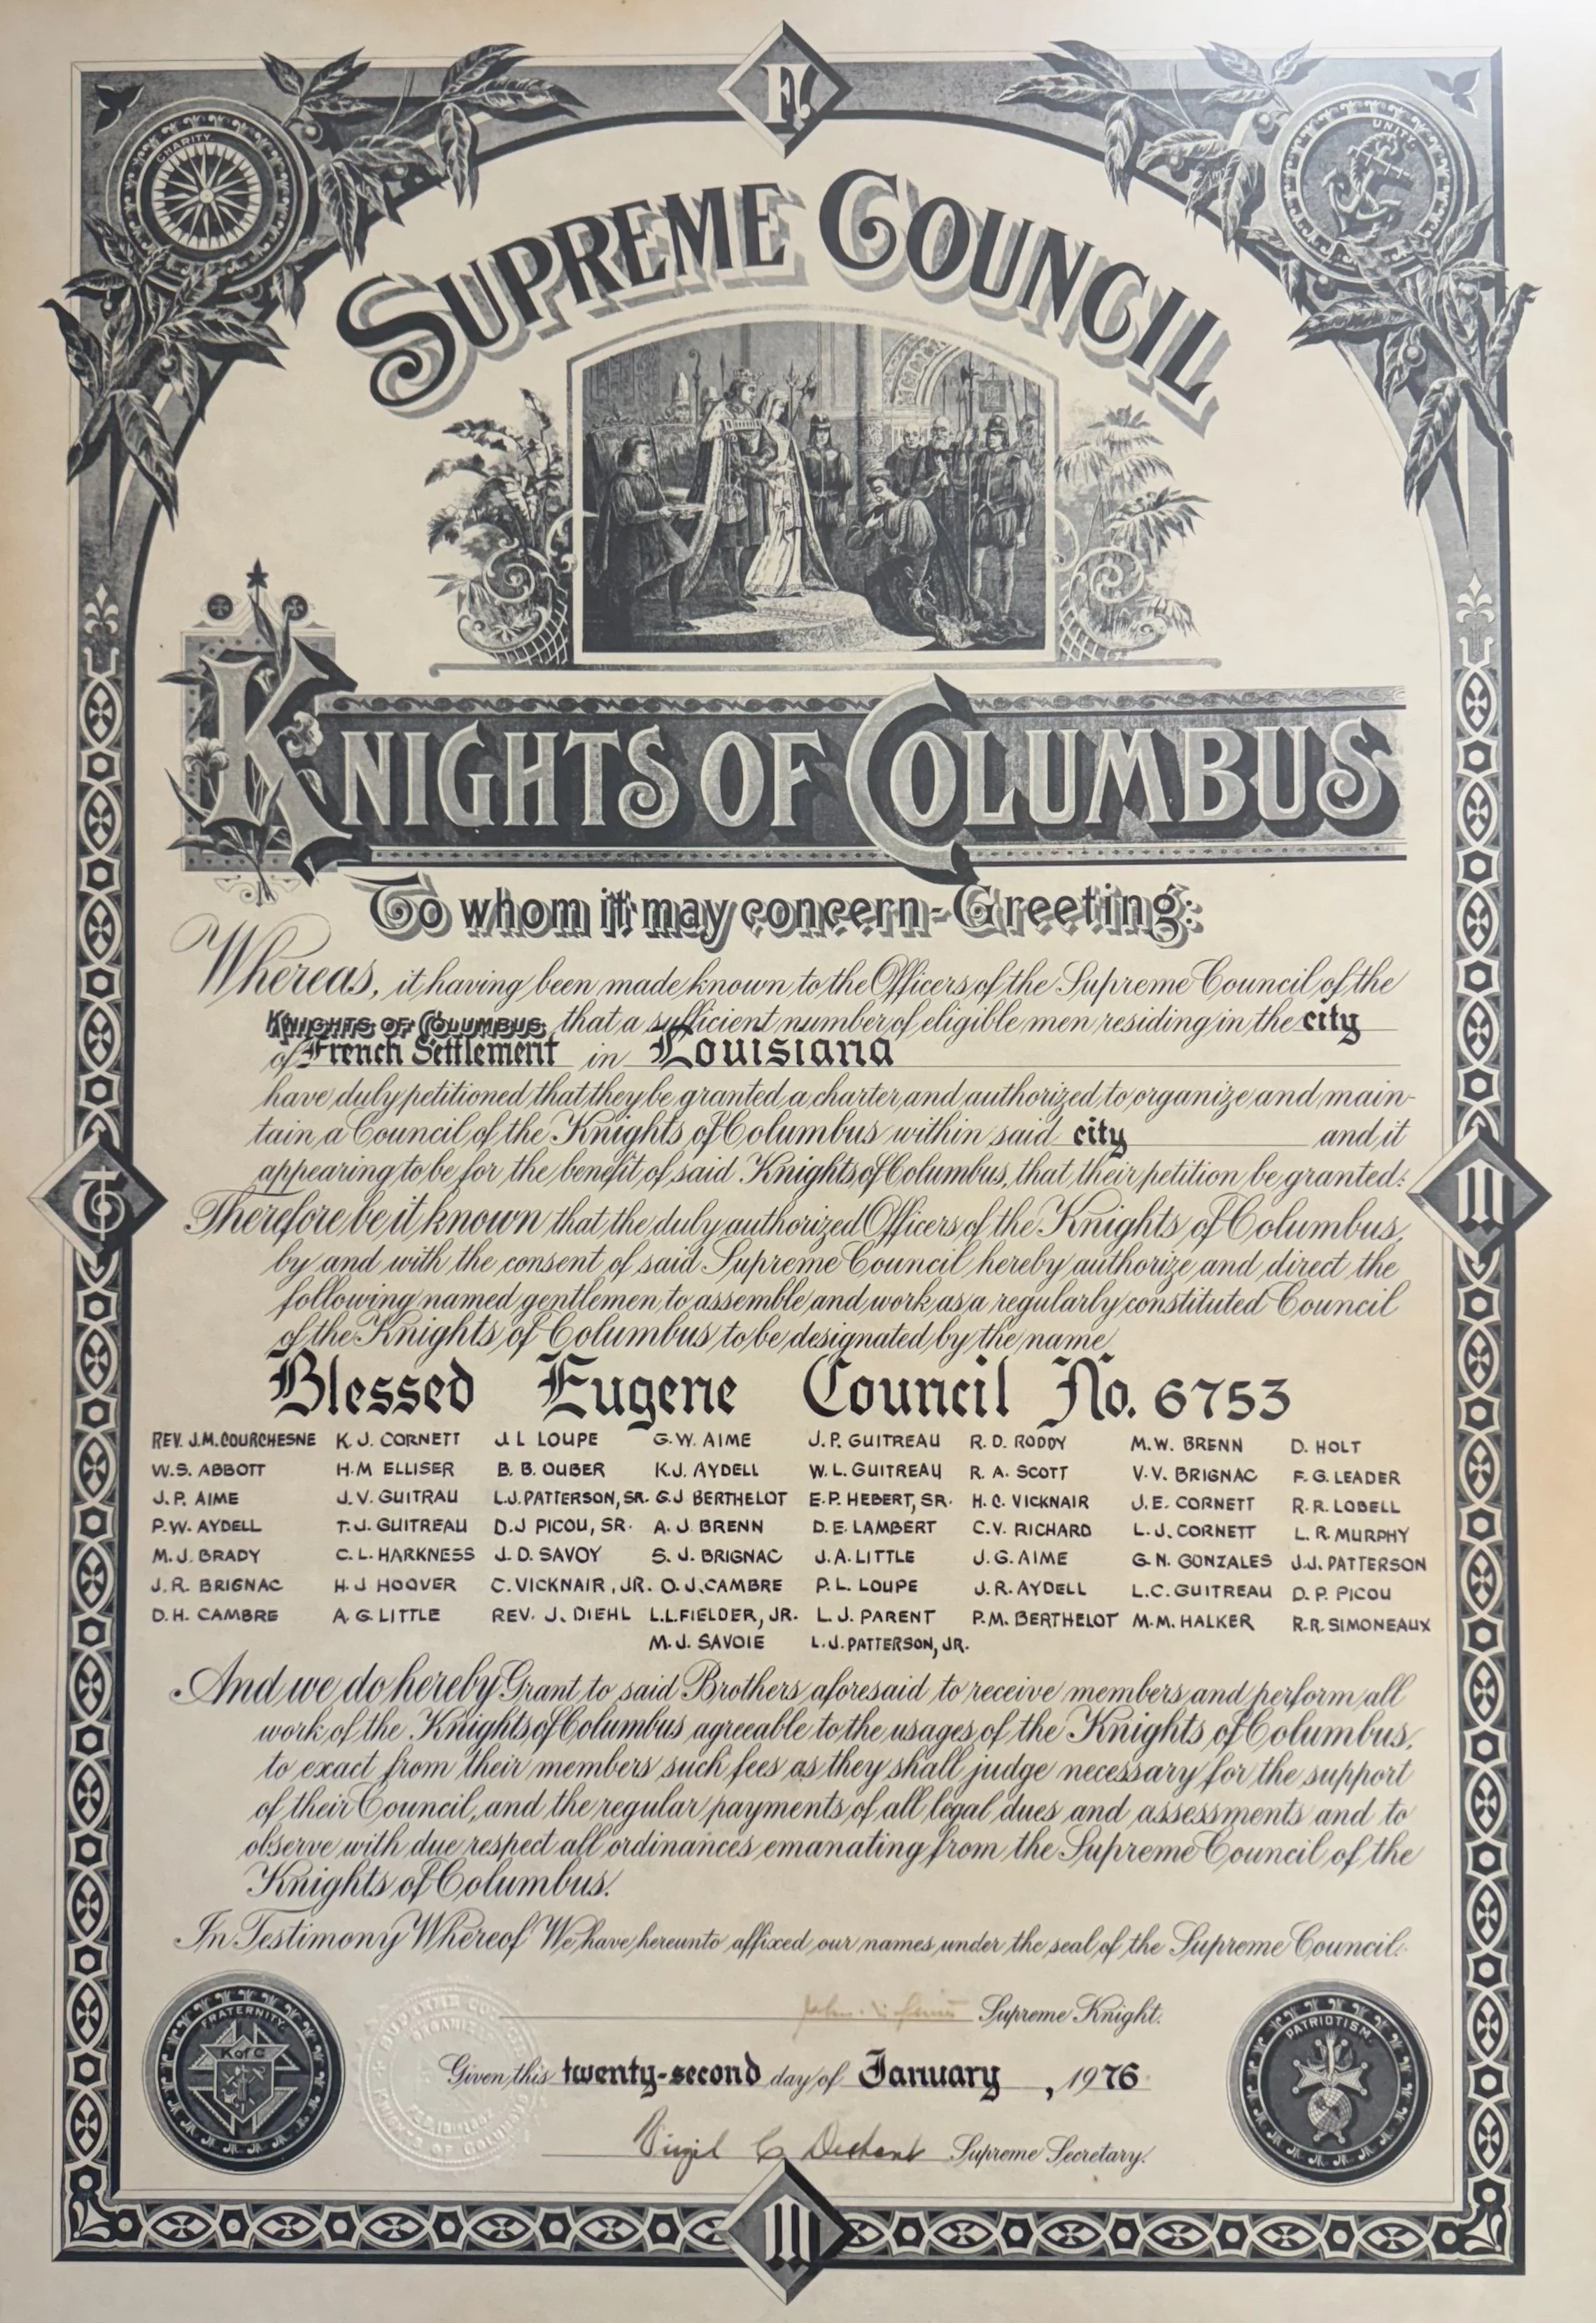 F.
CHARITY.
UNITY.
SUPREME COUNCIL
KNIGHTS OF COLUMBUS
To whom it may concern-Greeting:
Whereas, it having been made known to the Officers of the Supreme Council of the
KNIGHTS OF COLUMBUS, that a sufficient number of eligible men residing in the city
of French Settlement in Louisiana
have duly petitioned that they be granted a charter and authorized to organize and main-
tain a Council of the Knights of Columbus within said city and it
appearing to be for the benefit of said Knights of Columbus, that their petition be granted:
Therefore be it known that the duly authorized Officers of the Knights of Columbus,
by and with the consent of said Supreme Council hereby authorize and direct the
following named gentlemen to assemble and work as a regularly constituted Council
of the Knights of Columbus to be designated by the name
Blessed Eugene Council No. 6753
REV. J.M. COURCHESNE K. J. CORNETT J. L LOUPE G. W. AIME J. P. GUITREAU R. D. RODDY M. W. BRENN D. HOLT
W. S. ABBOTT H. M ELLISER B. B. OUBER K. J. AYDELL W. L. GUITREAU R. A. SCOTT V. V. BRIGNAC F. G. LEADER
J. P. AIME J. V. GUITRAU L. J. PATTERSON, SR. G. J BERTHELOT E. P. HEBERT, SR. H. C. VICKNAIR J. E. CORNETT R. R. LOBELL
P. W. AYDELL T. J. GUITREAU D. J PICOU, SR. A. J. BRENN D. E. LAMBERT C. V. RICHARD L. J. CORNETT L. R. MURPHY
M. J. BRADY C. L. HARKNESS J. D. SAVOY S. J. BRIGNAC J. A. LITTLE J. G. AIME G. N. GONZALES J. J. PATTERSON
J. R. BRIGNAC H. J HOOVER C. VICKNAIR, JR. O. J. CAMBRE P. L. LOUPE J. R. AYDELL L. C. GUITREAU D. P. PICOU
D. H. CAMBRE A. G. LITTLE REV. J. DIEHL L. L. FIELDER, JR. L. J. PARENT P. M. BERTHELOT M. M. HALKER R. R. SIMONEAUX
M. J. SAVOIE L. J. PATTERSON, JR.
And we do hereby Grant to said Brothers aforesaid to receive members and perform all
work of the Knights of Columbus agreeable to the usages of the Knights of Columbus,
to exact from their members such fees as they shall judge necessary for the support
of their Council, and the regular payments of all legal dues and assessments and to
observe with due respect all ordinances emanating from the Supreme Council of the
Knights of Columbus.
In Testimony Whereof We have hereunto affixed our names, under the seal of the Supreme Council.
FRATERNITY.
K of C
PATRIOTISM.
John Supreme Knight.
Given this twenty-second day of January, 1976
KNIGHTS OF COLUMBUS
Virgil C Dechant Supreme Secretary.